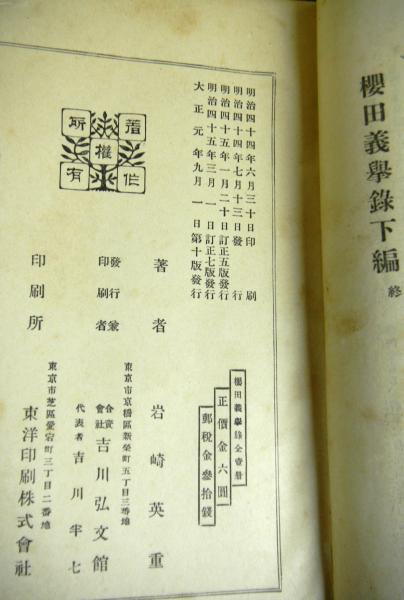 櫻田義擧錄下編 終
明治四十四年六月三十日印刷
明治四十四年七月十三日發行
明治四十五年一月二十日訂正五版發行
明治四十五年三月一日訂正七版發行
大正元年九月一日第十版發行
著作權所有
櫻田義擧錄全壹册
正價金六圓
郵税金參拾錢
著者 岩崎英重
東京市京橋區新榮町五丁目三番地
發行兼印刷者 合資會社吉川弘文館
代表者 吉川半七
東京市芝區愛宕町三丁目二番地
印刷所 東洋印刷株式會社